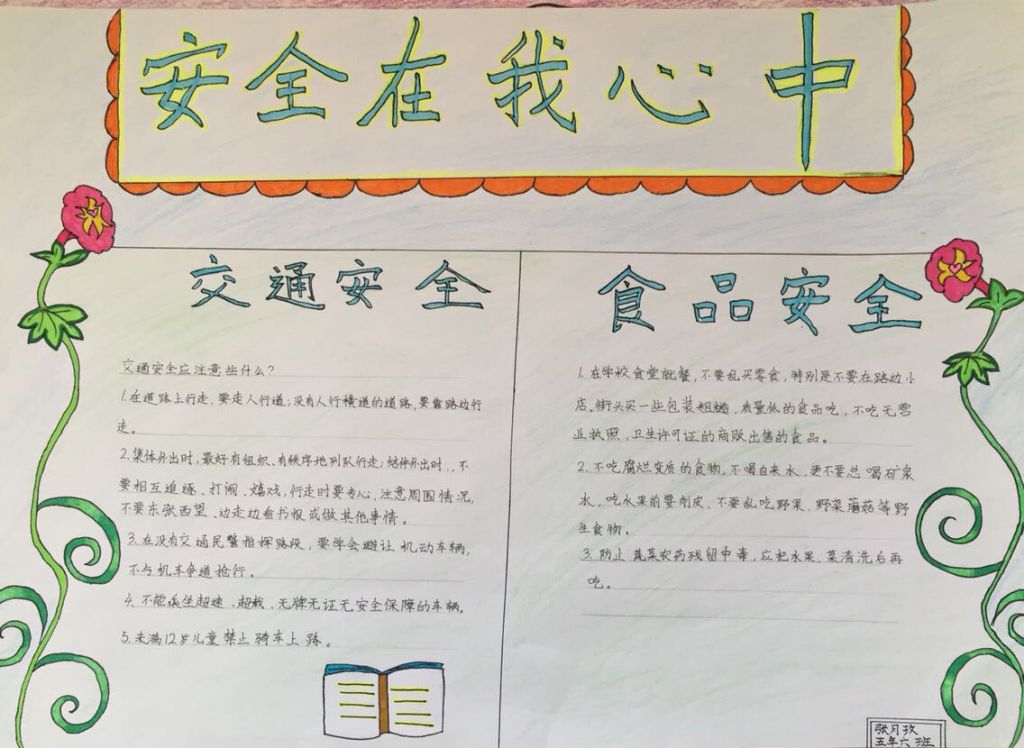 安全在我心中
交通安全
交通安全应注意些什么?
1.在道路上行走,要走人行道;没有人行横道的道路,要靠路边行
走。
2.集体外出时,最好有组织、有秩序地列队行走;结伴外出时,不
要相互追逐、打闹、嬉戏,行走时要专心,注意周围情况,
不要东张西望、边走边看书报或做其他事情。
3.在没有交通民警指挥路段,要学会避让机动车辆,
不与机车争道抢行。
4.不能乘坐超速、超载、无牌无证无安全保障的车辆。
5.未满12岁儿童禁止骑车上路。
食品安全
1.在学校食堂就餐,不要乱买零食,特别是不要在路边小
店、街头买一些包装粗糙、质量低的食品吃,不吃无营
业执照、卫生许可证的商贩出售的食品。
2.不吃腐烂变质的食物,不喝自来水,更不要总喝矿泉
水,吃水果前要削皮,不要乱吃野果、野菜蘑菇等野
生食物。
3.防止蔬菜农药残留中毒,应把水果、菜清洗后再
吃。
张月玫
五年六班